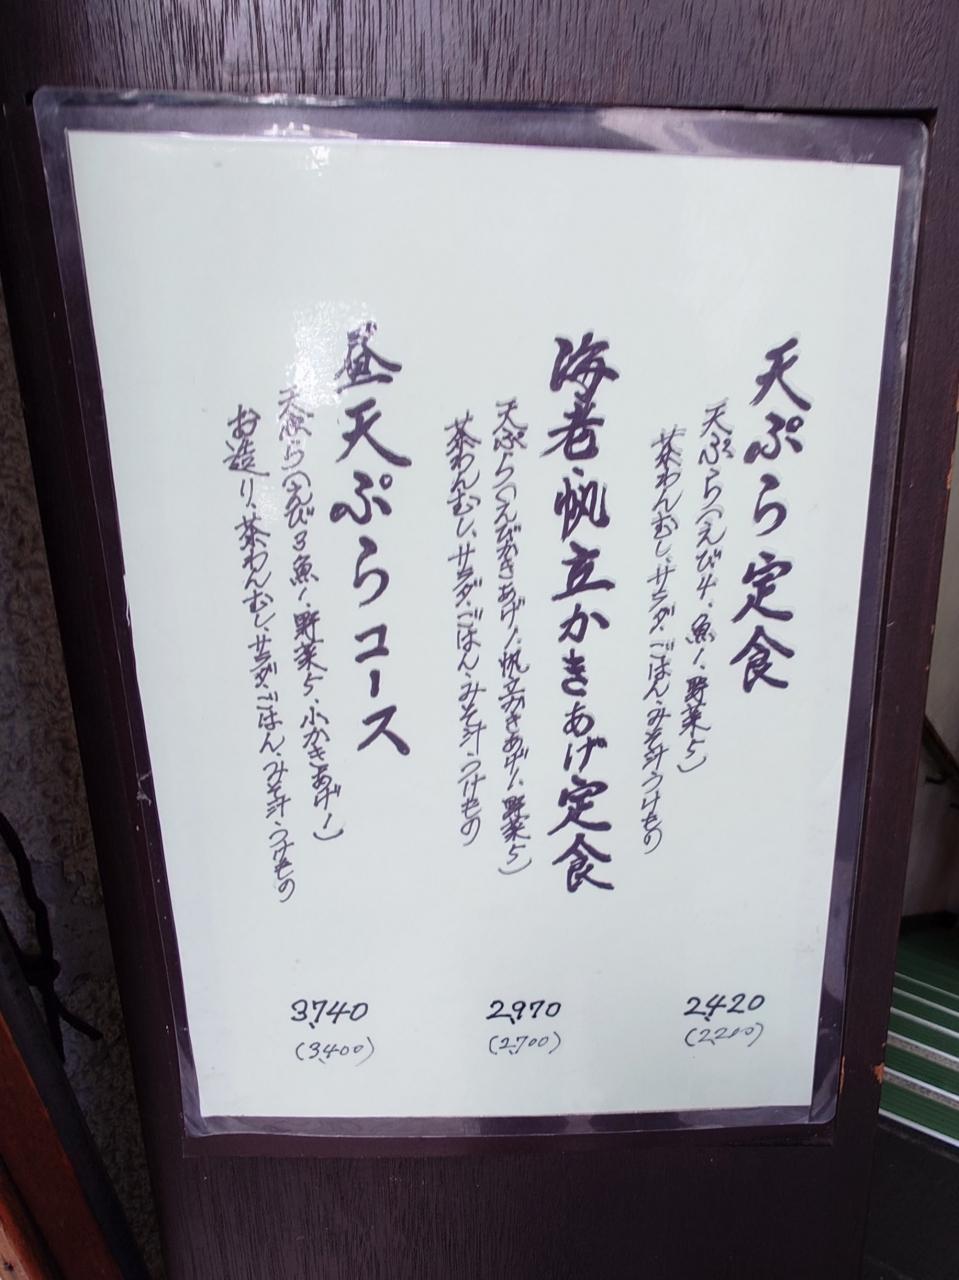 天ぷら定食
天ぷら(えび4、魚1、野菜5)
茶わんむし、サラダ、ごはん、みそ汁、つけもの
2,420
(2,200)
海老・帆立かきあげ定食
天ぷら(えびかきあげ1、帆立かきあげ1、野菜5)
茶わんむし、サラダ、ごはん、みそ汁、つけもの
2,970
(2,700)
昼天ぷらコース
天ぷら(えび3魚1、野菜5、小かきあげ1)
お造り、茶わんむし、サラダ、ごはん、みそ汁、つけもの
3,740
(3,400)